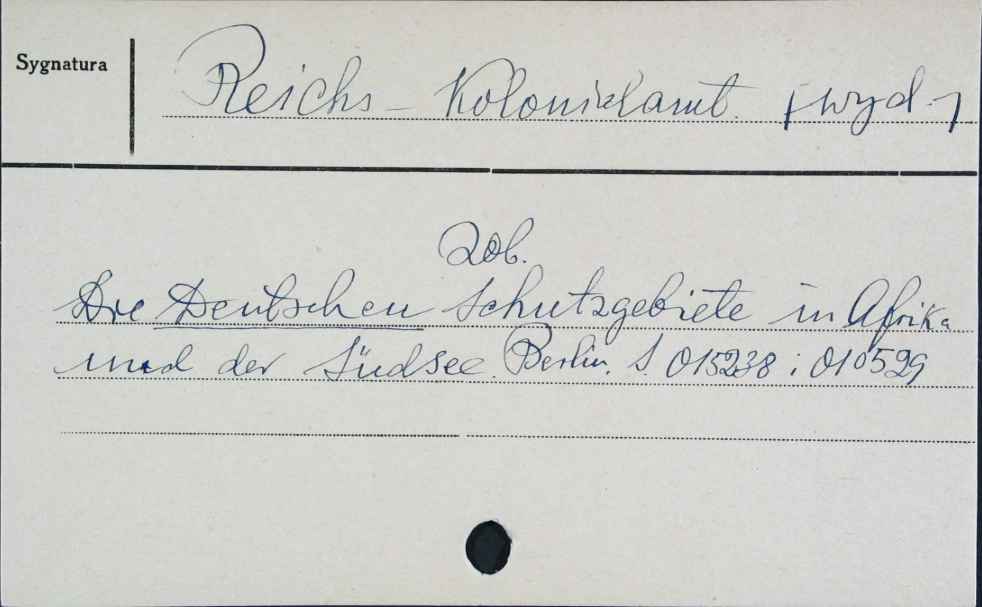 Sygnatura
Reichs-Kolonialamt. [wyd.]
Zob.
Die Deutschen Schutzgebiete in Afrika
und der Südsee. Berlin. S. 015238 i 010529